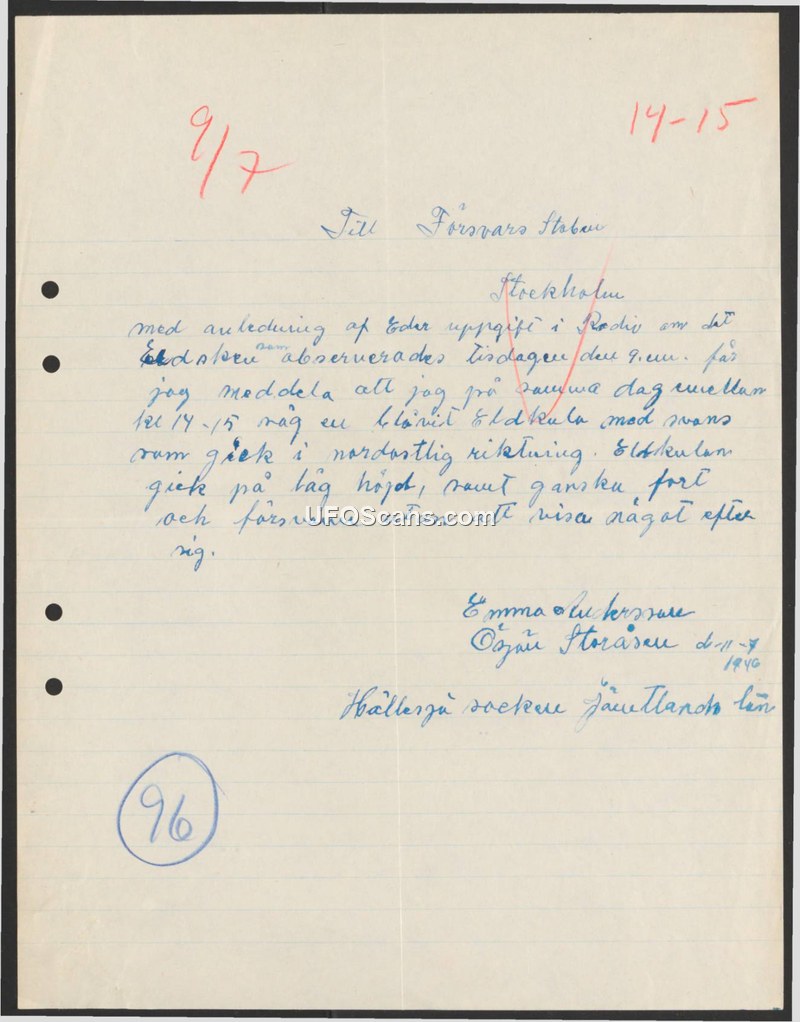 9/7
14-15
Till Försvars Staben
Stockholm
med anledning af Eder uppgift i Radio om det
Eldsken som observerades tisdagen den 9. får
jag meddela att jag på samma dag mellan
kl 14-15 såg en blåvit Eldkula med svans
som gick i nordostlig riktning. Eldkulan
gick på låg höjd, samt ganska fort
och att visa något efter
sig.
UFOScans.com
Emma Andersson
Storåsen d. 11-7
1946
Hällesjö socken Jämtlands län
96